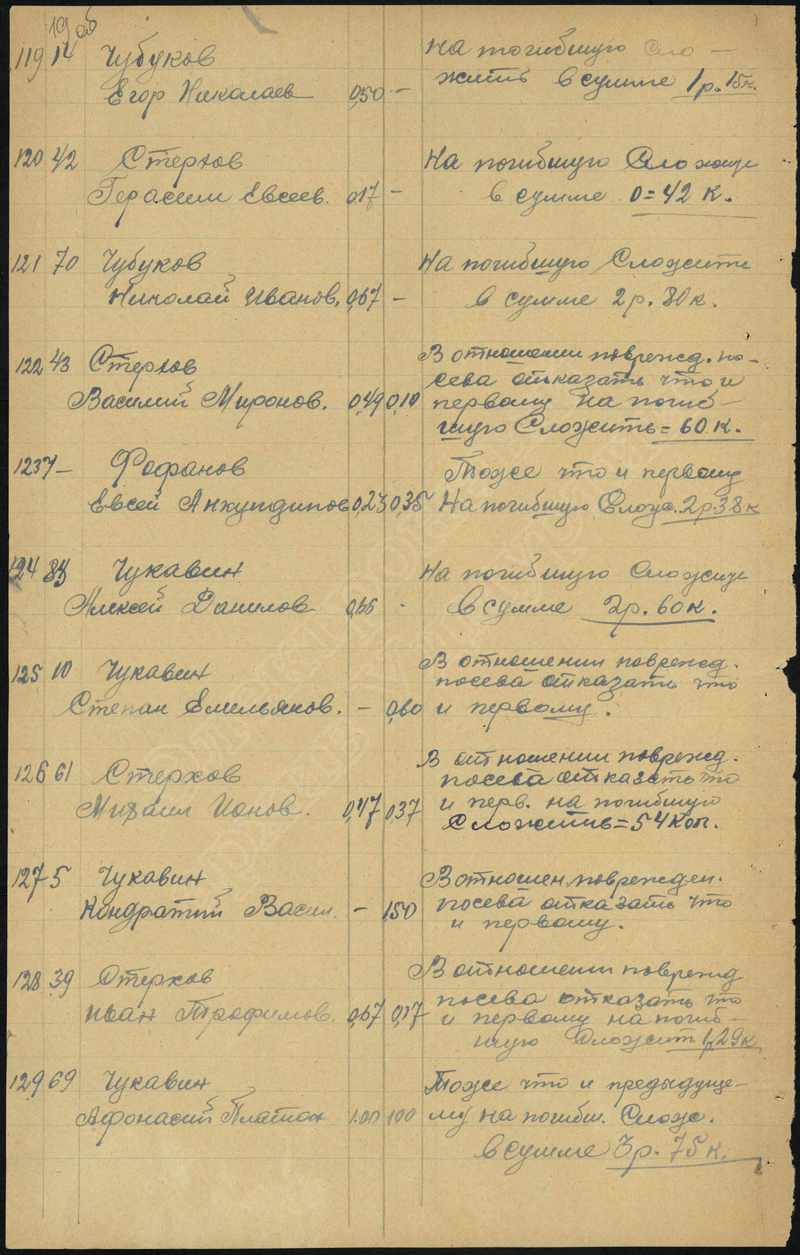 19 об
119 14 Чубуков На погибшую сло-
Егор Николаев 0,50 - жить в сумме 1 р. 15 к.
120 42 Стерхов На погибшую Сложить
Герасим Евсеев. 0,17 - в сумме 0 = 42 к.
121 70 Чубуков На погибшую Сложить
Николай Иванов. 0,67 - в сумме 2 р. 80 к.
122 43 Стерхов В отношении поврежд. по-
сева отказать что и
Василий Миронов. 0,49 0,10 первому На погиб-
шую Сложить = 60 к.
123 7 - Фофанов Тоже что и первому
Евсей 0,23 0,35 На погибшую Слож. 2 р 38 к
124 Чукавин На погибшую Сложить
Алексей Данилов 0,65 - в сумме 2 р. 60 к.
125 10 Чукавин В отношении поврежд.
посева отказать что
Степан Емельянов. - 0,60 и первому.
126 61 Стерхов В отношении поврежд.
посева отказать что
Михаил Ионов. 0,47 0,37 и перв. на погибшую
Сложить = 54 коп.
127 5 Чукавин В отношен. поврежден.
Кондратий Васил. - 1,50 посева отказать что
и первому.
128 39 Стерхов В отношении поврежд
посева отказать что
Иван Трофимов. 0,67 0,17 и первому на погиб-
шую Сложит 1 р 29 к
129 69 Чукавин Тоже что и предыдуще-
Афонасий Платон 1.00 1,00 му на погибш. Слож.
в сумме 3 р. 75 к.